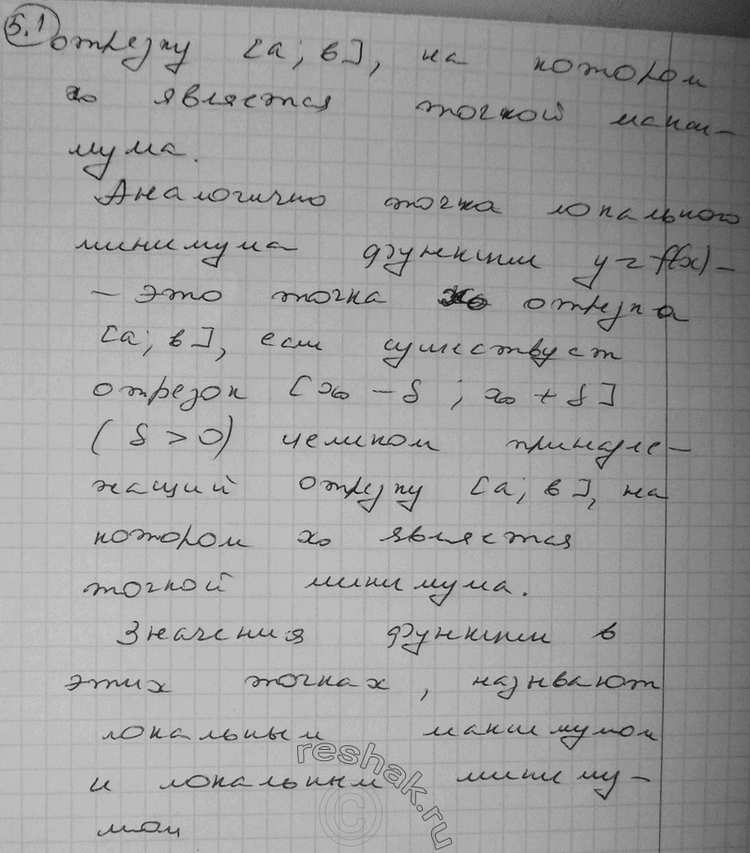 5.1
отрезку [a; в], на котором
x₀ является точкой макси-
мума.
Аналогично точка локального
минимума функции y = f(x) -
- это точка x₀ отрезка
[a; в], если существует
отрезок [x₀ - δ ; x₀ + δ]
(δ > 0) целиком принадле-
жащий отрезку [a; в], на
котором x₀ является
точкой минимума.
Значения функции в
этих точках, называют
локальным максимумом
и локальным миниму-
мом
reshak.ru
©